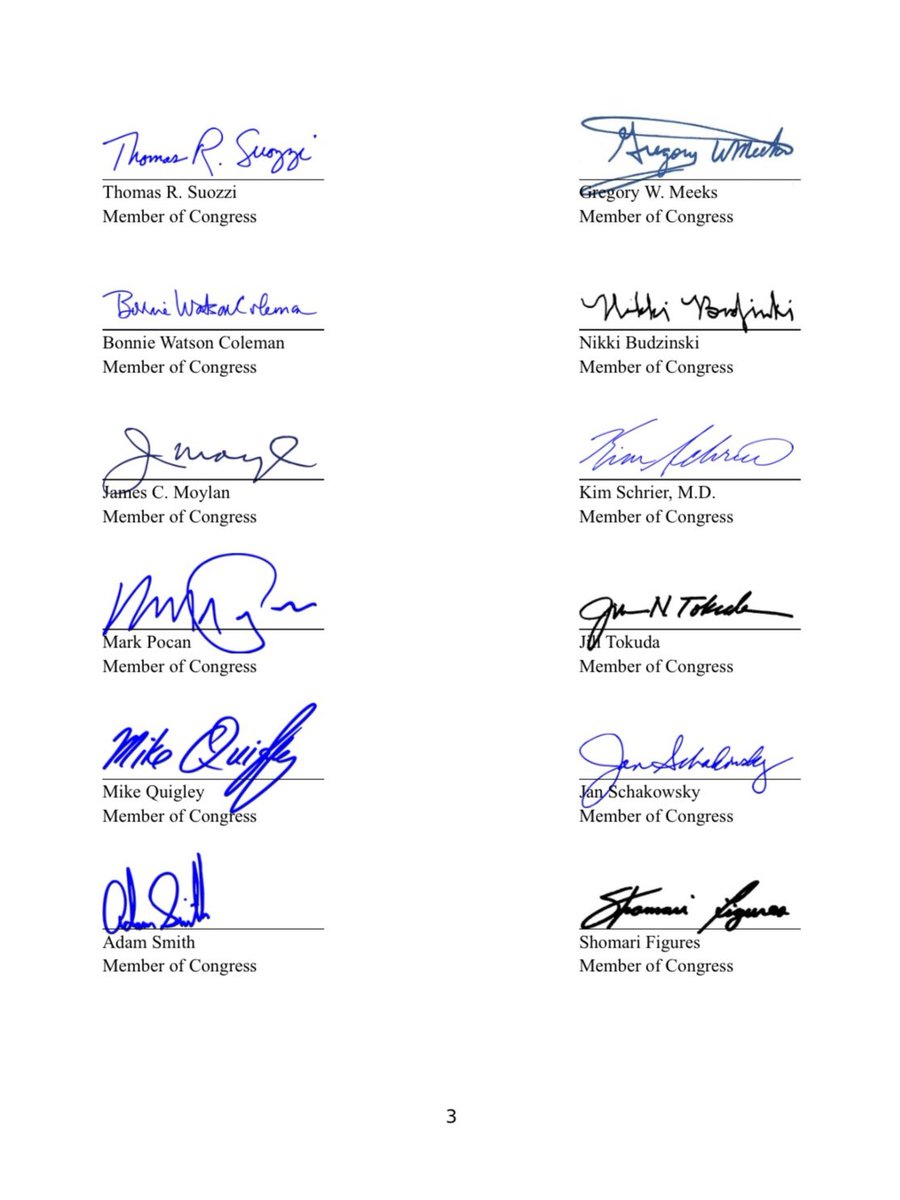 Thomas R. Suozzi
Gregory W Meeks
Thomas R. Suozzi
Gregory W. Meeks
Member of Congress
Member of Congress
Bonnie Watson Coleman
Nikki Budzinski
Bonnie Watson Coleman
Nikki Budzinski
Member of Congress
Member of Congress
J Moyl
Kim Schrier
James C. Moylan
Kim Schrier, M.D.
Member of Congress
Member of Congress
Jill N Tokuda
Mark Pocan
Jill Tokuda
Member of Congress
Member of Congress
Mike Quigley
Jan Schakowsky
Mike Quigley
Jan Schakowsky
Member of Congress
Member of Congress
Adam Smith
Shomari Figures
Adam Smith
Shomari Figures
Member of Congress
Member of Congress
3